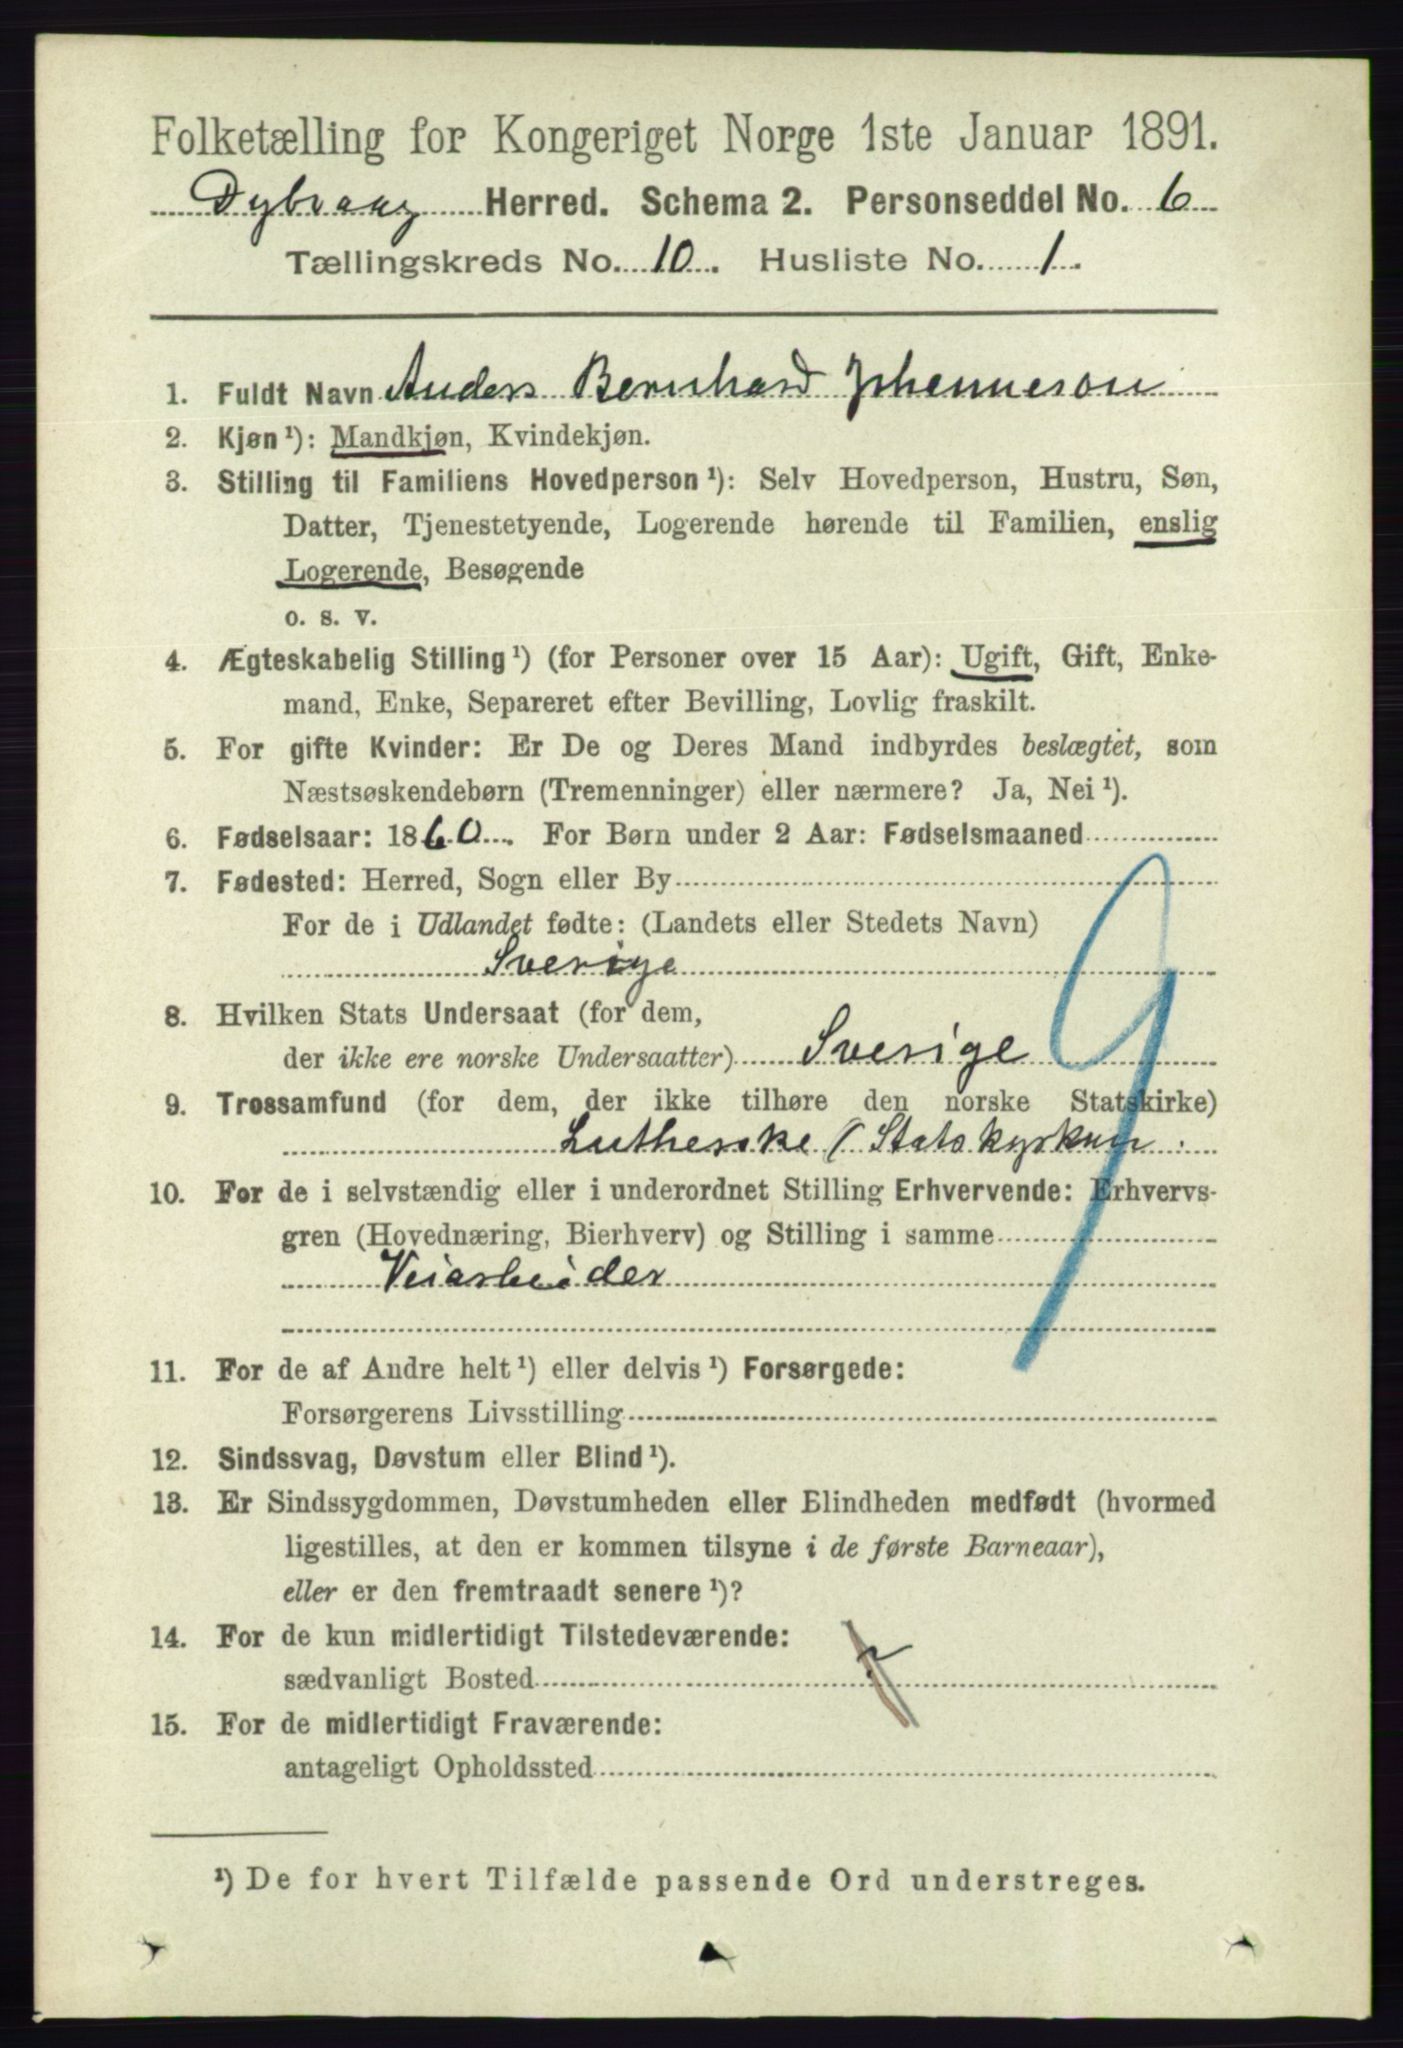 Folketælling for Kongeriget Norge 1ste Januar 1891.
Dybvaag Herred. Schema 2. Personseddel No. 6
Tællingskreds No. 10. Husliste No. 1.
1. Fuldt Navn Anders Bernhard Johanneson
2. Kjøn ¹): Mandkjøn, Kvindekjøn.
3. Stilling til Familiens Hovedperson ¹): Selv Hovedperson, Hustru, Søn,
Datter, Tjenestetyende, Logerende hørende til Familien, enslig
Logerende, Besøgende
o. s. v.
4. Ægteskabelig Stilling ¹) (for Personer over 15 Aar): Ugift, Gift, Enke-
mand, Enke, Separeret efter Bevilling, Lovlig fraskilt.
5. For gifte Kvinder: Er De og Deres Mand indbyrdes beslægtet, som
Næstsøskendebørn (Tremenninger) eller nærmere? Ja, Nei ¹).
6. Fødselsaar: 1860. For Børn under 2 Aar: Fødselsmaaned
7. Fødested: Herred, Sogn eller By
For de i Udlandet fødte: (Landets eller Stedets Navn)
Sverige
8. Hvilken Stats Undersaat (for dem,
der ikke ere norske Undersaatter) Sverige
9. Trossamfund (for dem, der ikke tilhøre den norske Statskirke)
Lutherske ( Statskyrkan.
10. For de i selvstændig eller i underordnet Stilling Erhvervende: Erhvervs-
gren (Hovednæring, Bierhverv) og Stilling i samme
Veiarbeider
9
11. For de af Andre helt ¹) eller delvis ¹) Forsørgede:
Forsørgerens Livsstilling
12. Sindssvag, Døvstum eller Blind ¹).
13. Er Sindssygdommen, Døvstumheden eller Blindheden medfødt (hvormed
ligestilles, at den er kommen tilsyne i de første Barneaar),
eller er den fremtraadt senere ¹)?
14. For de kun midlertidigt Tilstedeværende:
sædvanligt Bosted ?
15. For de midlertidigt Fraværende:
antageligt Opholdssted
¹) De for hvert Tilfælde passende Ord understreges.